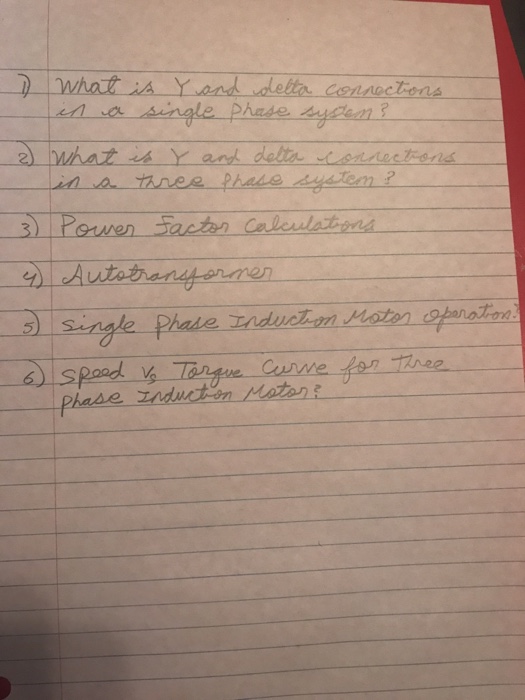 1) What is Y and delta connections
in a single phase system?
2) What is Y and delta connections
in a three phase system?
3) Power factor calculations
4) Autotransformer
5) single phase Induction Motor operation?
6) speed Vs Torque Curve for Three
phase Induction Motor?